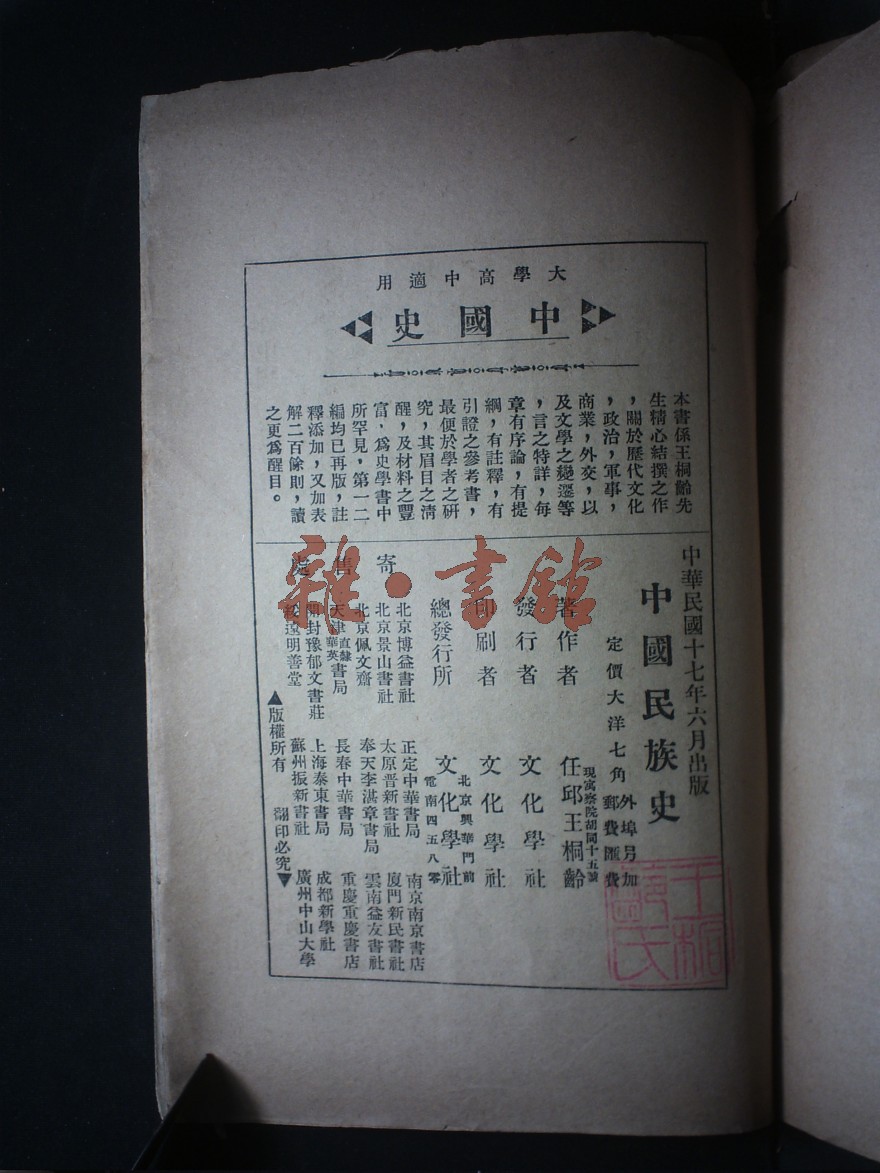 大學高中適用
中國史
本書係王桐齡先
生精心結撰之作
,關於歷代文化
,政治,軍事,
商業,外交,以
及文學之變遷等
,言之特詳,每
章有序論,有提
綱,有註釋,有
引證之參考書,
最便於學者之研
究,其眉目之清
醒,及材料之豐
富,為史學書中
所罕見,第一二
編均已再版,註
釋添加,又加表
解二百餘則,讀
之更為醒目。
中華民國十七年六月出版
中國民族史
定價大洋七角 外埠另加郵費匯費
著作者 任邱王桐齡
現寓察院胡同十五號
發行者 文化學社
印刷者 文化學社
總發行所 北京興華門前 文化學社 電南四五八零
寄售處
北京博益書社 正定中華書局 南京南京書店
北京景山書社 太原晋新書社 厦門新民書社
北京佩文齋 奉天李湛章書局 雲南益友書社
天津直隸華英書局 長春中華書局 重慶重慶書店
開封豫郁文書莊 上海泰東書局 成都新學社
綏遠明善堂 蘇州振新書社 廣州中山大學
▲版權所有 翻印必究▼
王桐
雜·書館